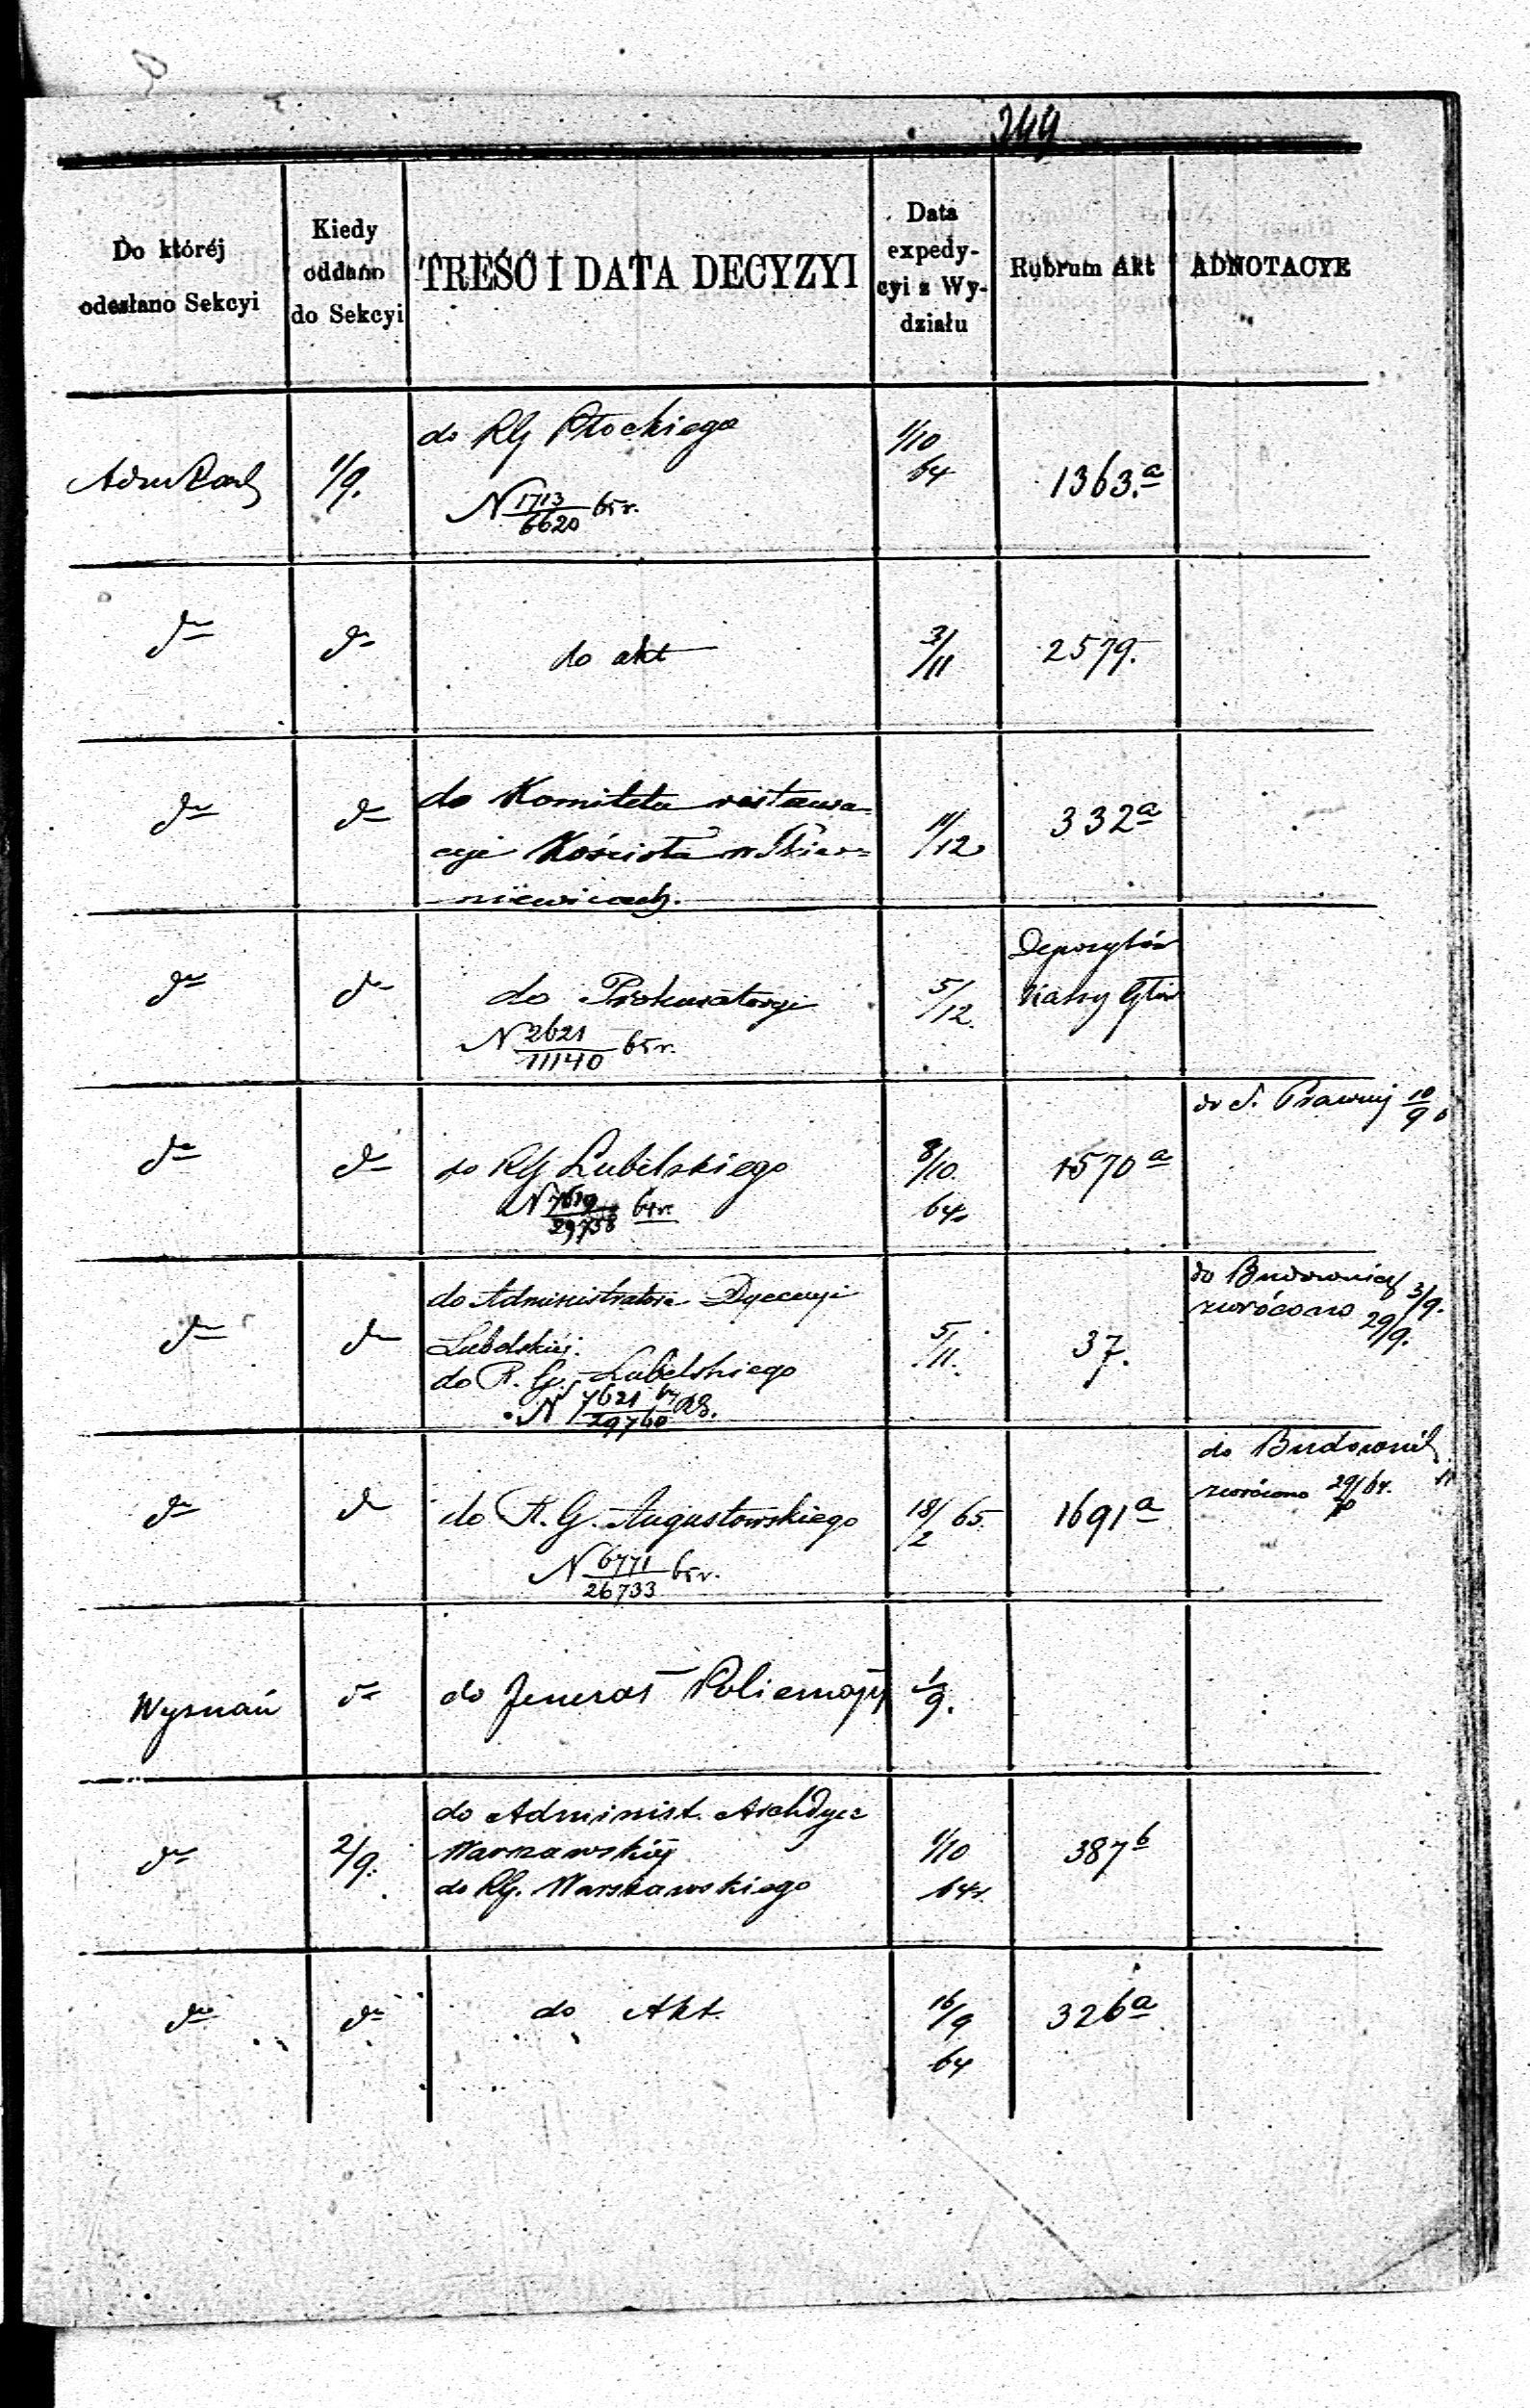 299
Do któréj odesłano Sekcyi
Kiedy oddano do Sekcyi
TREŚĆ I DATA DECYZYI
Data expedycyi z Wydziału
Rubrum Akt
ADNOTACYE
1/9.
do RG Płockiego
N 1713/6620 65 r.
1/10 64
1363.a
do
do
do akt
3/11
2579.
do
do
do Komitetu restaura=
cyi Kościoła w Skier=
niewicach.
11/12
332a
do
do
do Prokuratoryi
N 2621/11140 65 r.
5/12.
Depozytów
do
do
do RG Lubelskiego
N 7619/29738 64 r.
8/10. 64
1570a
do S. Prawnej 10/9
do
do
do Administratora Dyecezyi
Lubelskiéj.
do R. G. Lubelskiego
N 7621/29760
5/11.
37.
do Budowniczej 3/9.
zwrócono 29/9.
do
do
do R. G. Augustowskiego
N 6771/26733 65 r.
18/2 65.
1691a
do Budownicz
zwrócono 29/10 64.
Wyznań
do
do Jenerał Policmajs
1/9.
do
2/9.
do Administ. ArchDyec
Warszawskiéj
do RG. Warszawskiego
1/10 64 r.
387b
do
do
do Akt.
16/9 64
326a